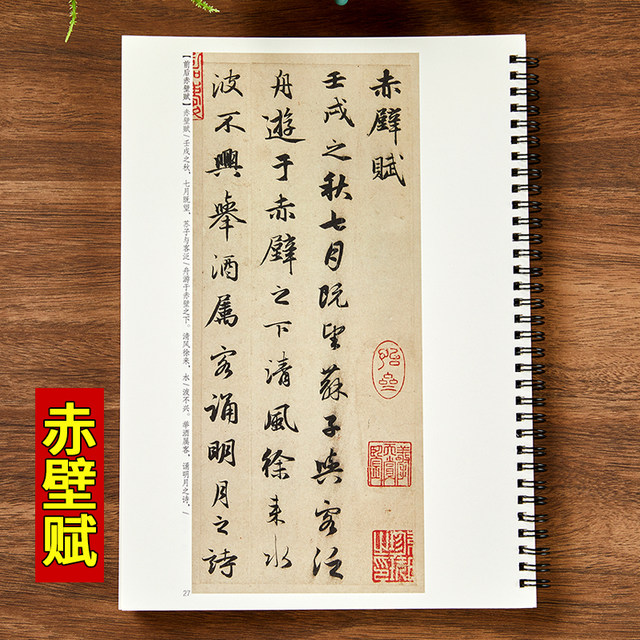 赤壁賦
壬戌之秋七月既望蘇子與客泛
舟遊于赤壁之下清風徐来水
波不興舉酒属客誦明月之詩
【前后赤壁赋】赤壁赋/壬戌之秋，七月既望，苏子与客泛/舟游于赤壁之下。清风徐来，水/波不兴。举酒属客，诵明月之诗，/
27
赤壁赋